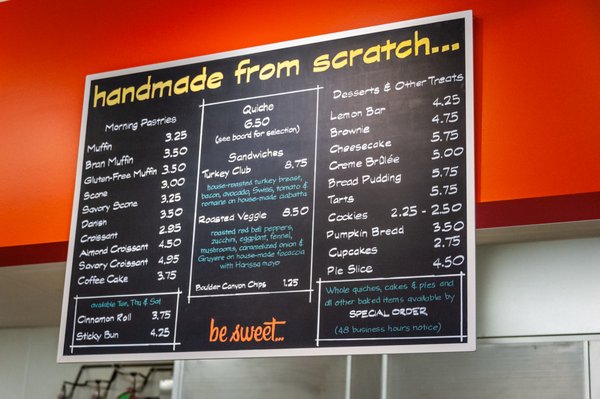 handmade from scratch...
Morning Pastries
Muffin 3.25
Bran Muffin 3.50
Gluten-Free Muffin 3.50
Scone 3.00
Savory Scone 3.25
Danish 3.50
Croissant 2.95
Almond Croissant 4.50
Savory Croissant 4.95
Coffee Cake 3.75
available Tue, Thu & Sat
Cinnamon Roll 3.75
Sticky Bun 4.25
Quiche
6.50
(see board for selection)
Sandwiches
Turkey Club 8.75
house-roasted turkey breast,
bacon, avocado, Swiss, tomato &
romaine on house-made ciabatta
Roasted Veggie 8.50
roasted red bell peppers,
zucchini, eggplant, fennel,
mushrooms, caramelized onion &
Gruyere on house-made focaccia
with Harissa mayo
Boulder Canyon Chips 1.25
be sweet...
Desserts & Other Treats
Lemon Bar 4.25
Brownie 4.75
Cheesecake 5.75
Creme Brûlée 5.00
Bread Pudding 5.75
Tarts 5.75
Cookies 2.25 - 2.50
Pumpkin Bread 3.50
Cupcakes 2.75
Pie Slice 4.50
Whole quiches, cakes & pies and
all other baked items available by
SPECIAL ORDER
(48 business hours notice)